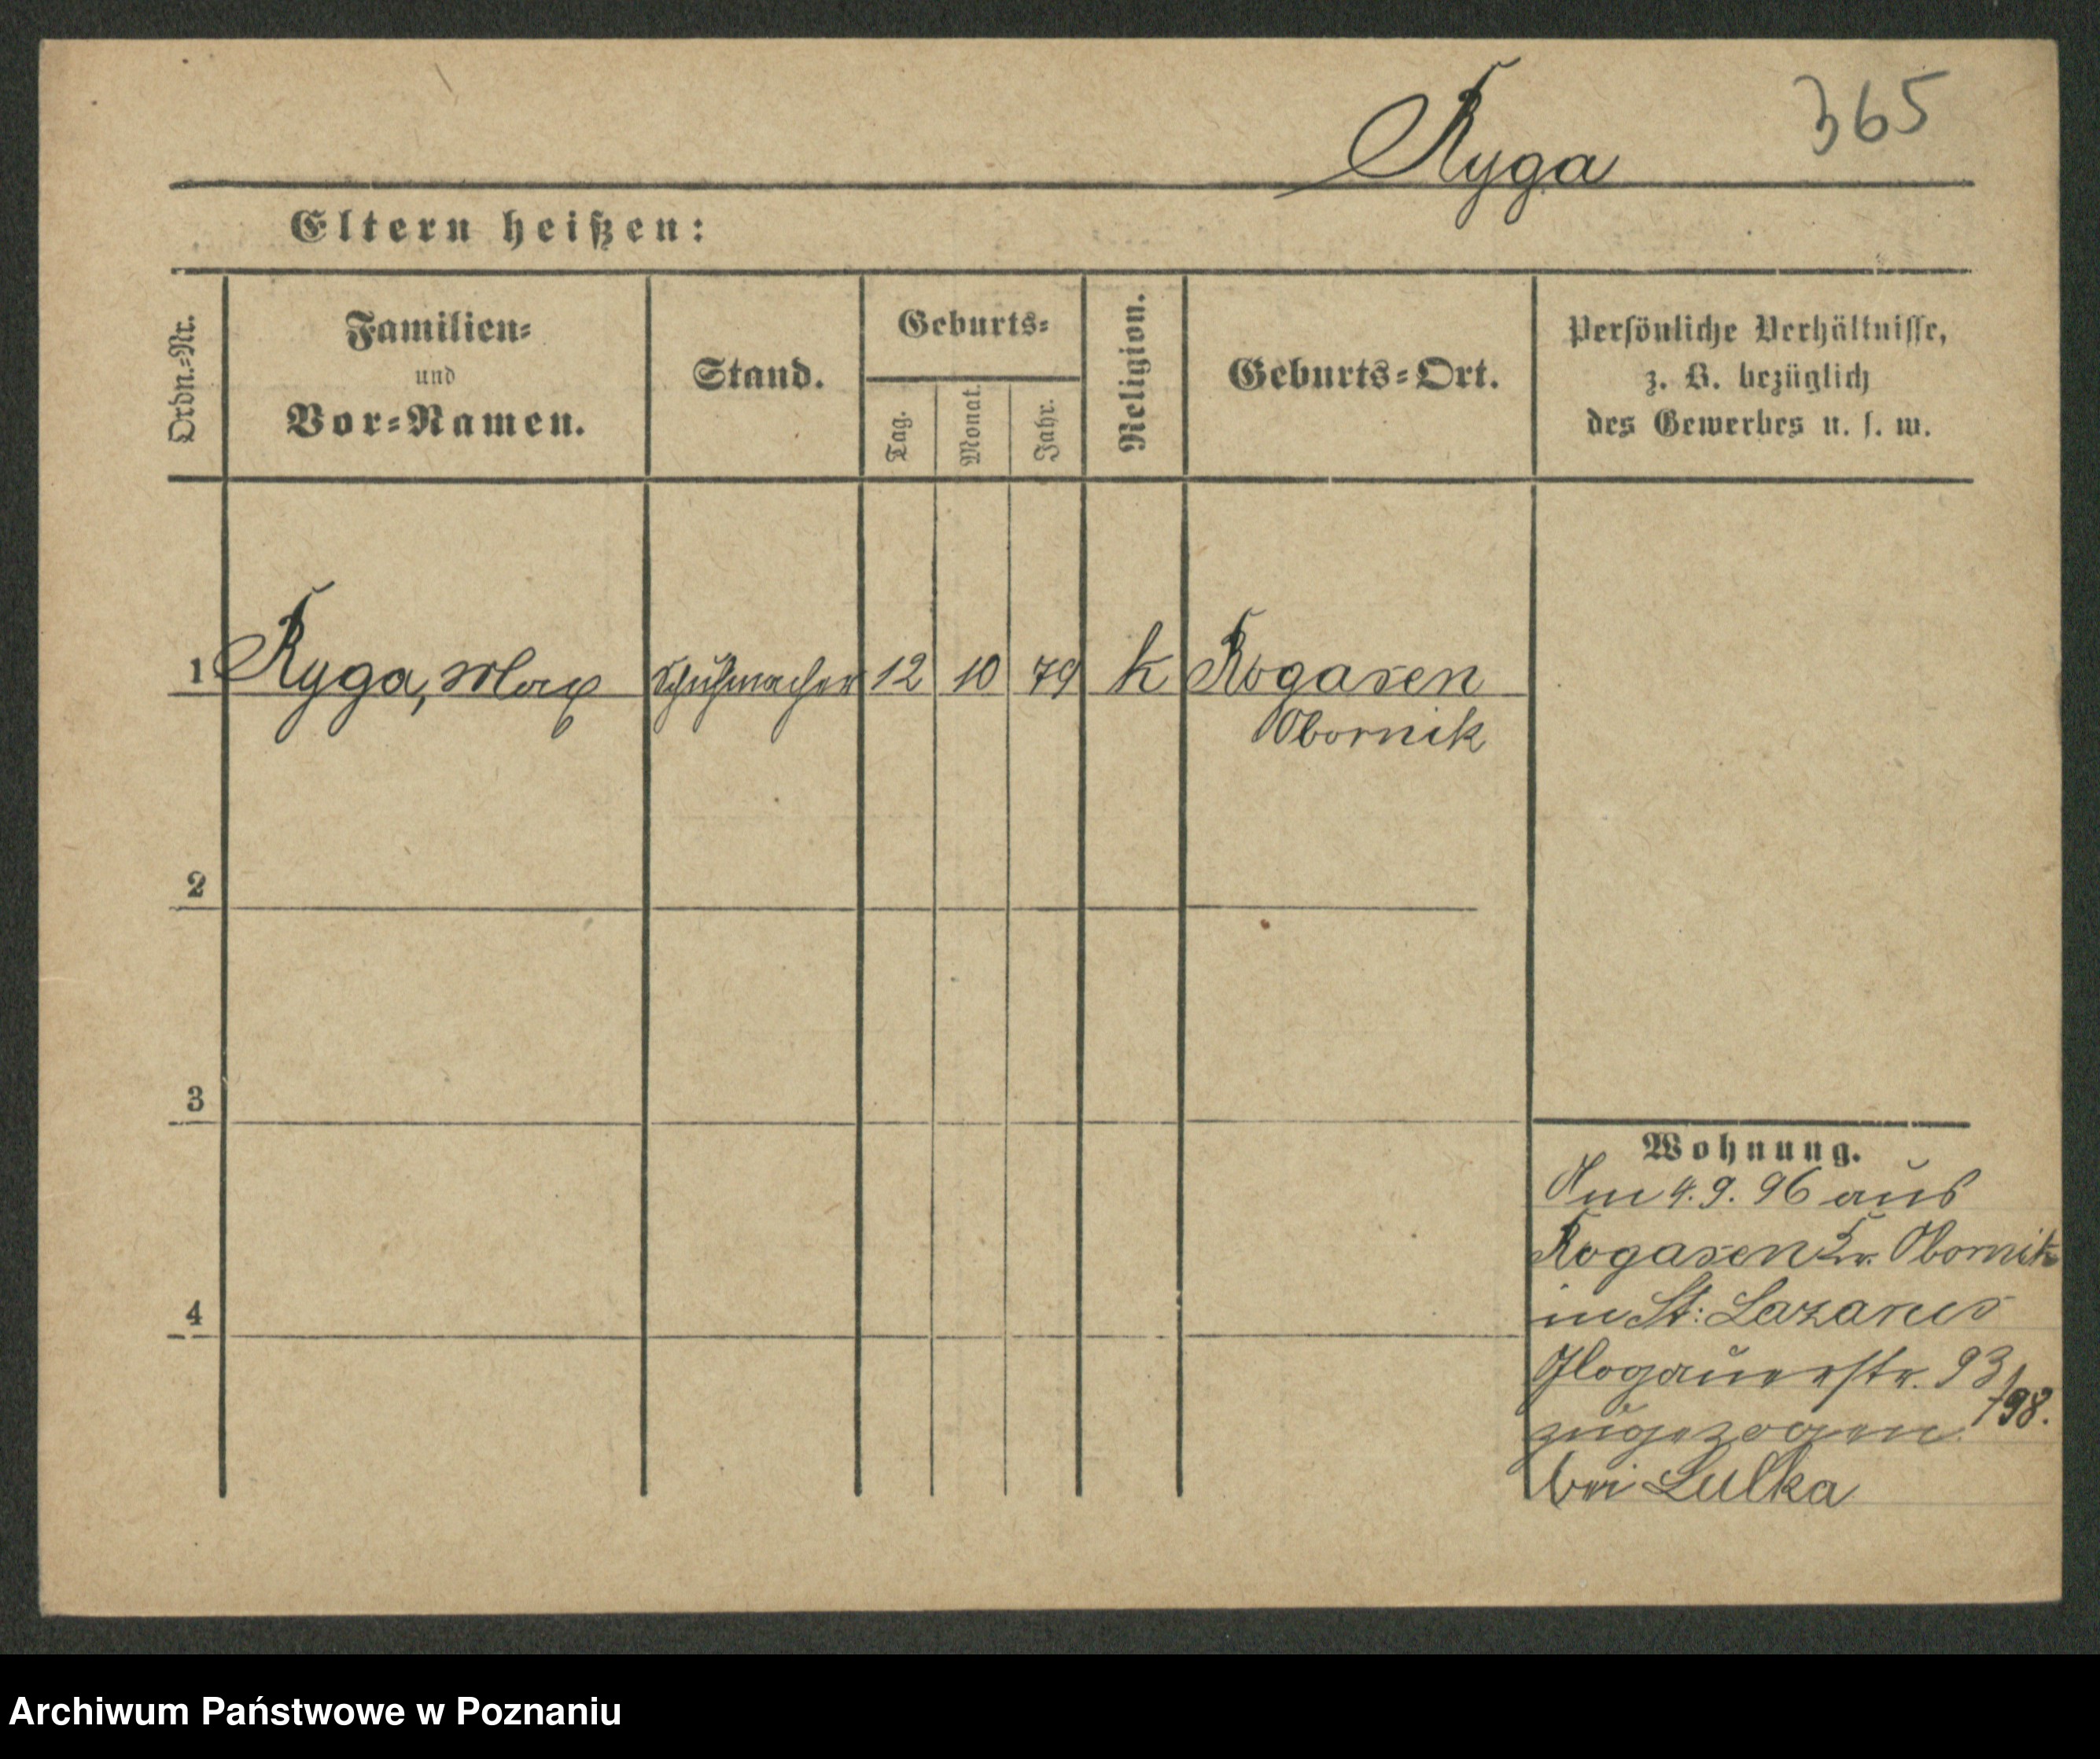 365
Ryga
Eltern heißen:
Ordn.-Nr.
Familien-
und
Vor-Namen.
Stand.
Geburts-
Tag.
Monat.
Jahr.
Religion.
Geburts-Ort.
Persönliche Verhältnisse,
z. B. bezüglich
des Gewerbes u. s. w.
1 Ryga, Max Schuhmacher 12 10 79 k Rogasen
Obornik
2
3
4
Wohnung.
Am 4.9.96 aus
Rogasen Kr. Obornik
in St: Lazarus
Glogauerstr. 93/98.
zugezogen.
bei Lulka
Archiwum Państwowe w Poznaniu